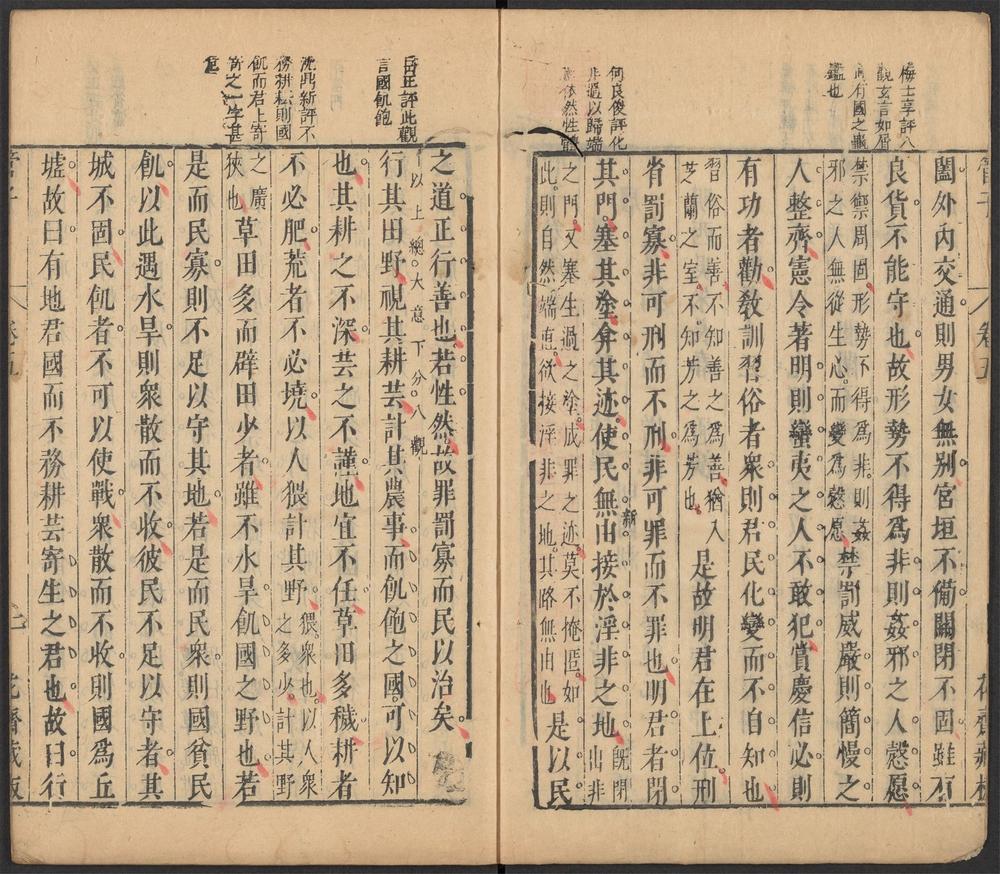 梅士享評八
觀玄言如屑
鑑也
闔外內交通則男女無別宮垣不僃關閉不固雖有
良貨不能守也故形勢不得爲非則姦邪之人慤愿
禁禦周固形勢不得爲非則姦
邪之人無從生心而變爲慤愿
禁罰威嚴則簡慢之
人整齊憲令著明則蠻夷之人不敢犯賞慶信必則
有功者勸敎訓習俗者衆則君民化變而不自知也
習俗而善不知善之爲善猶入
芝蘭之室不知芳之爲芳也
是故明君在上位刑
省罰寡非可刑而不刑非可罪而不罪也明君者閉
何良俊評化
非過以歸端
依然性
其門塞其塗弇其迹使民無由接於淫非之地
旣閉
出非
之門又塞生過之塗成罪之迹莫不掩匿如
此則自然端慤欲接淫非之地其路無由也
是以民
管子
卷五
花齋藏板
之道正行善也若性然故罪罰寡而民以治矣
以上總大意下分八觀
岳正評此觀
言國飢飽
行其田野視其耕芸計其農事而飢飽之國可以知
也其耕之不深芸之不謹地宜不任草田多穢耕者
沈鼎新評不
務耕耘則國
飢而君上寄
寄之一字甚
不必肥荒者不必墝以人猥計其野
猥衆也以人衆
之多少計其野
之廣
狹也
草田多而辟田少者雖不水旱飢國之野也若
是而民寡則不足以守其地若是而民衆則國貧民
飢以此遇水旱則衆散而不收彼民不足以守者其
城不固民飢者不可以使戰衆散而不收則國爲丘
墟故曰有地君國而不務耕芸寄生之君也故曰行
管子
卷五
花齋藏板